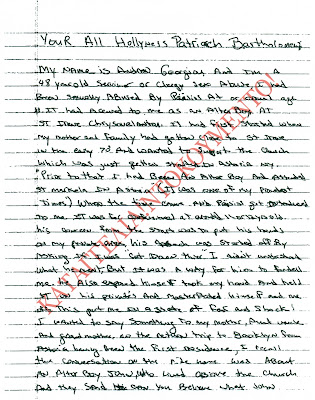 YouR All Hollyness Patriach Bartholomew
My Name is Andrew Georgias And I'm A
48 year old Survivor of Clergy Sex Abuse, I had
Been Sexually Abused By Paisius At or Around age
11. It had Accured to me as an Alter Boy At
St Irene Chrysovalantou. It had First Started where
my mother and Family had gotten Close to St Irene
in the early 70's And wanted to Support the Church
which was just getting started in Astoria ny.
"Prior to that I had Been An Alter Boy And Attended
St markela In Astoria (It was one of my Proudest
Times) When the time came And Paisius got introduced
to me
his concern From the start was to put his hands
on my private Area, his Approach was Started off By
Asking if I was Cut Down there I didn't understand
what he meant, But it was A way For him to Fondell
me. he Also exposed himself took my hand And held
it on his privates And masterbated himself and me
This put me in A state of Fear and Shock!
I wanted to say Something To my mother, Aunt
And grand mother, on the Return trip to Brooklyn From
Astoria having Been the First Residence, I recall
the conversation on the ride home was About
An Alter Boy John, Who Lived above the Church
And they Said Can You Believe what John
KATAPATEMAINTOLOYMENTO!